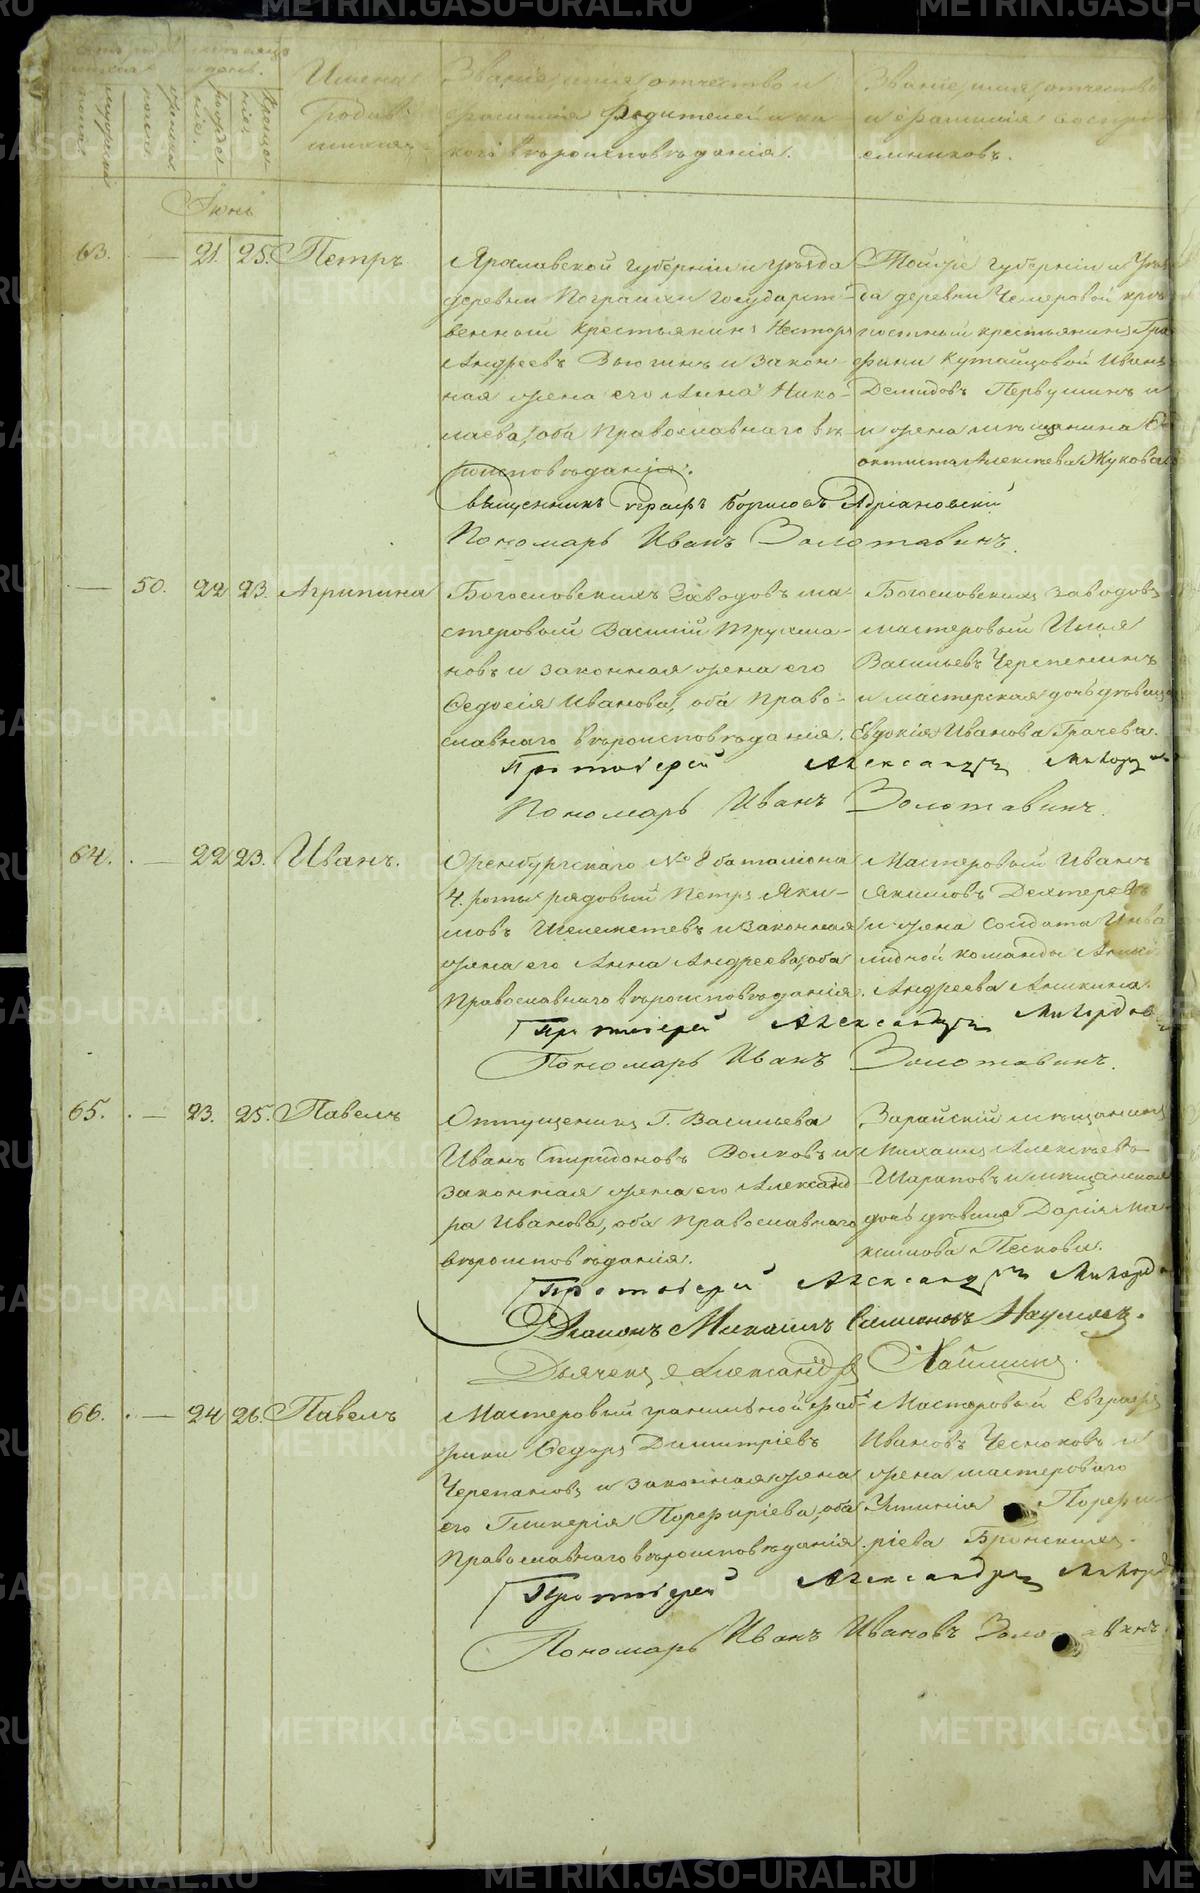 Счетъ родившихся
Мѣсяцъ и день.
мужеска пола
женска пола
рождения
крещения
Имена родившихся.
Званіе, имя, отчество и
фамилія родителей и ка-
кого вѣроисповѣданія.
Званіе, имя, отчество
и фамилія воспрі-
емниковъ.
Іюнь
63. — 21. 25. Петръ
Ярославской губерніи и уѣзда
деревни государст-
венной крестьянинъ Несторъ
Андреевъ Вьюгинъ и закон-
ная жена его Анна Нико-
лаева, оба Православнаго вѣ-
роисповѣданія.
Тойже губерніи и Уѣз-
да деревни Чемеровой крѣ-
постный крестьянинъ Гра-
фини Кутайцовой Иванъ
Демидовъ Первушинъ и
и жена мѣщанина
Алексѣева Жукова
Священникъ Борисовъ Адріановскій
Пономарь Иванъ Золотавинъ.
— 50. 22 23. Агрипина
Богословскихъ Заводовъ ма-
стеровой Василій Трухма-
новъ и законная жена его
Ѳедосія Иванова, оба Право-
славнаго вѣроисповѣданія.
Богословскихъ заводовъ
мастеровый Илья
Васильевъ Черепенинъ
и мастерская дочь дѣвица
Евдокія Иванова Грачева.
Протоіерей Александръ
Пономарь Иванъ Золотавинъ.
64. — 22 23. Иванъ.
Оренбургскаго № 8 баталіона
4. роты рядовый Петръ Яки-
мовъ Шелеметевъ и законная
жена его Анна Андреева, оба
Православнаго вѣроисповѣданія.
Мастеровый Иванъ
Якимовъ Дехтеревъ
и жена солдата Инва-
лидной команды
Андреева Аникина.
Протоіерей Александръ
Пономарь Иванъ Золотавинъ.
65. — 23. 25. Павелъ
Отпущеникъ Г. Васильева
Иванъ Спиридоновъ Волковъ и
законная жена его Александ-
ра Иванова, оба Православнаго
вѣроисповѣданія.
Зарайскій мѣщанинъ
Михаилъ Алексѣевъ
Шараповъ и мѣщанская
дочь дѣвица Дарія Ма-
ксимова Пескова.
Протоіерей Александръ
Діаконъ Михаилъ Симеоновъ Наумовъ.
Дьячекъ Александръ Хаймин
66. — 24 26. Павелъ
Мастеровый гранильной фаб-
рики Ѳедоръ Димитріевъ
Черепановъ и законная жена
его Гликерія Порфиріева, оба
Православнаго вѣроисповѣданія.
Мастеровый Евграфъ
Ивановъ Чесноковъ и
жена мастероваго
Устинія Порфи-
ріева Бронскихъ.
Протоіерей Александръ
Пономарь Иванъ Ивановъ Золотавинъ.
METRIKI.GASO-URAL.RU